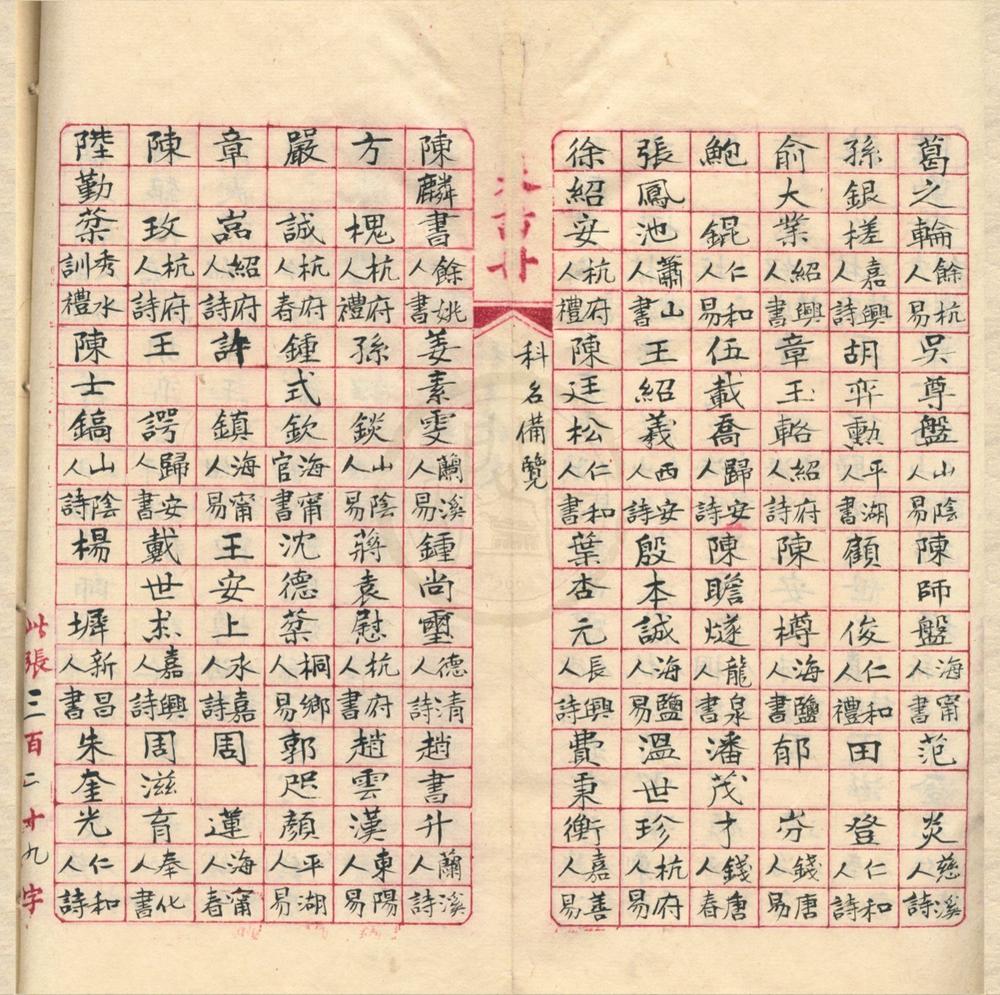 葛之輪餘杭人易吳尊盤山陰人易陳師盤海甯人書范炎慈溪人詩
孫銀槎嘉興人詩胡弈勳平湖人書顧俊仁和人禮田登仁和人詩
俞大業紹興人書章玉輅紹府人詩陳樽海鹽人書郁岎錢唐人易
鮑錕仁和人易伍載喬歸安人詩陳瞻燧龍泉人書潘茂才錢唐人春
張鳳池蕭山人書王紹義西安人詩殷本誠海鹽人易溫世珍杭府人易
徐紹安杭府人禮陳廷松仁和人書葉杏元長興人詩費秉衡嘉善人易
科名備覽
陳麟書餘姚人書姜素雯蘭溪人易鍾尚璽德清人詩趙書升蘭溪人詩
方槐杭府人禮孫錟山陰人易蔣袁慰杭府人書趙雲漢東陽人易
嚴誠杭府人春鍾式欽海甯官書沈德棻桐鄉人易郭咫顏平湖人易
章嵩紹府人詩許鎮海甯人易王安上永嘉人詩周蓮海甯人春
陳玫杭府人詩王諤歸安人書戴世嘉興人詩周滋育奉化人書
陸勤棻秀水訓禮陳士鎬山陰人詩楊墀新昌人書朱奎光仁和人詩
此張三百二十九字